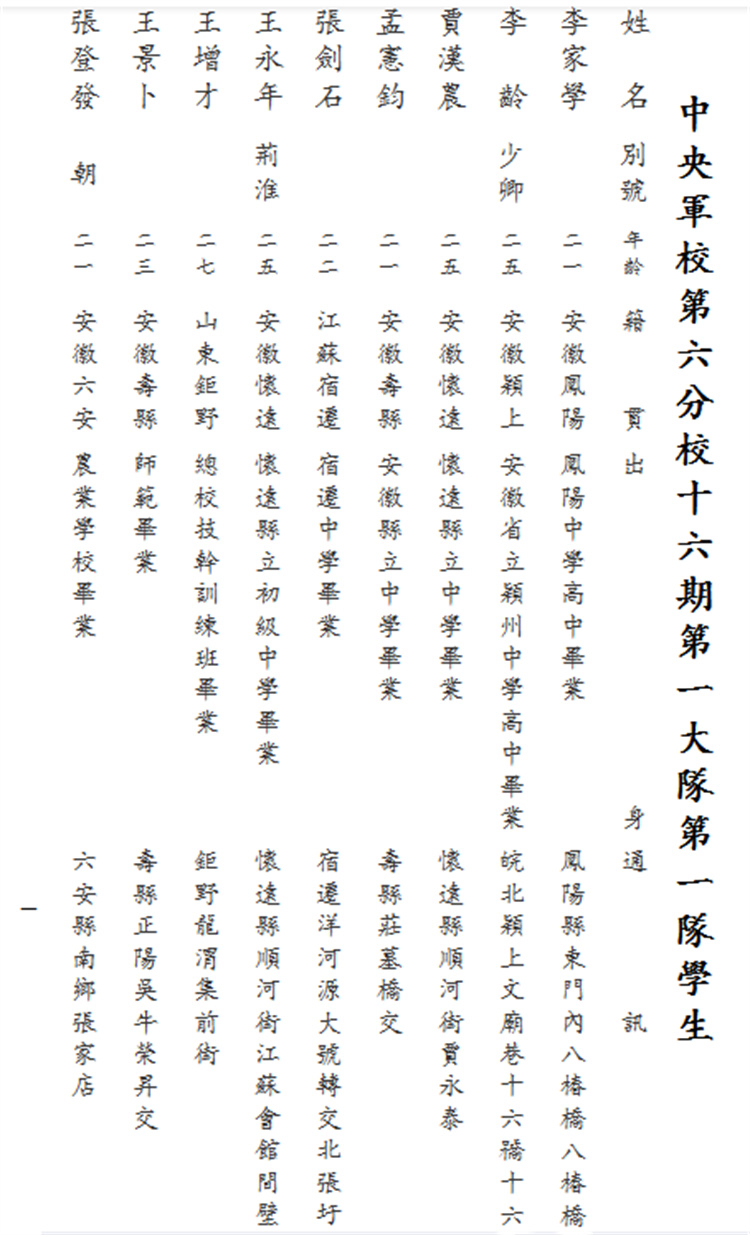 中央軍校第六分校十六期第一大隊第一隊學生
姓名 別號 年齡 籍貫 出身 通訊
李家學 二一 安徽鳳陽 鳳陽中學高中畢業 鳳陽縣東門內八椿橋八椿橋
李齡 少卿 二五 安徽潁上 安徽省立潁州中學高中畢業 皖北潁上文廟巷十六號十六
賈漢農 二五 安徽懷遠 懷遠縣立中學畢業 懷遠縣順河街賈永泰
孟憲鈞 二一 安徽壽縣 安徽縣立中學畢業 壽縣莊墓橋交
張劍石 二二 江蘇宿遷 宿遷中學畢業 宿遷洋河源大號轉交北張圩
王永年 荊淮 二五 安徽懷遠 懷遠縣立初級中學畢業 懷遠縣順河街江蘇會館間壁
王增才 二七 山東鉅野 總校技幹訓練班畢業 鉅野龍渭集前街
王景卜 二三 安徽壽縣 師範畢業 壽縣正陽吳牛榮昇交
張登發 朝 二一 安徽六安 農業學校畢業 六安縣南鄉張家店
一